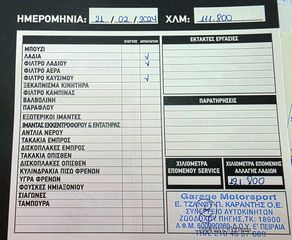 ΗΜΕΡΟΜΗΝΙΑ: 21 / 02 / 2024 ΧΛΜ: 111.800
ΕΛΕΓΧΟΣ ΑΝΤΙΚΑΤΑΣΤΑΣΗ
ΕΚΤΑΚΤΕΣ ΕΡΓΑΣΙΕΣ
ΜΠΟΥΖΙ
ΛΑΔΙΑ √
ΦΙΛΤΡΟ ΛΑΔΙΟΥ √
ΦΙΛΤΡΟ ΑΕΡΑ
ΦΙΛΤΡΟ ΚΑΥΣΙΜΟΥ √
ΞΕΚΑΠΝΙΣΜΑ ΚΙΝΗΤΗΡΑ
ΦΙΛΤΡΟ ΚΑΜΠΙΝΑΣ
ΒΑΛΒΟΛΙΝΗ
ΠΑΡΑΦΛΟΥ
ΕΞΩΤΕΡΙΚΟΙ ΙΜΑΝΤΕΣ
ΙΜΑΝΤΑΣ ΕΚΚΕΝΤΡΟΦΟΡΟΥ & ΕΝΤΑΤΗΡΑΣ
ΑΝΤΛΙΑ ΝΕΡΟΥ
ΤΑΚΑΚΙΑ ΕΜΠΡΟΣ
ΔΙΣΚΟΠΛΑΚΕΣ ΕΜΠΡΟΣ
ΤΑΚΑΚΙΑ ΟΠΙΣΘΕΝ
ΔΙΣΚΟΠΛΑΚΕΣ ΟΠΙΣΘΕΝ
ΚΥΛΙΝΔΡΑΚΙΑ ΠΙΣΩ ΦΡΕΝΩΝ
ΥΓΡΑ ΦΡΕΝΩΝ
ΦΟΥΣΚΕΣ ΗΜΙΑΞΟΝΙΟΥ
ΣΙΑΓΩΝΕΣ
ΤΑΜΠΟΥΡΑ
ΠΑΡΑΤΗΡΗΣΕΙΣ
ΧΙΛΙΟΜΕΤΡΑ
ΕΠΟΜΕΝΟΥ SERVICE
ΧΙΛΙΟΜΕΤΡΑ ΕΠΟΜΕΝΗΣ
ΑΛΛΑΓΗΣ ΛΑΔΙΩΝ
Garage Motorsport
Ε. ΤΖΑΝΟΣ - Π. ΚΑΡΑΝΤΗΣ Ο.Ε.
ΣΥΝΕΡΓΕΙΟ ΑΥΤΟΚΙΝΗΤΩΝ
ΖΩΟΔΟΧΟΥ ΠΗΓΗΣ, ΤΚ: 18900